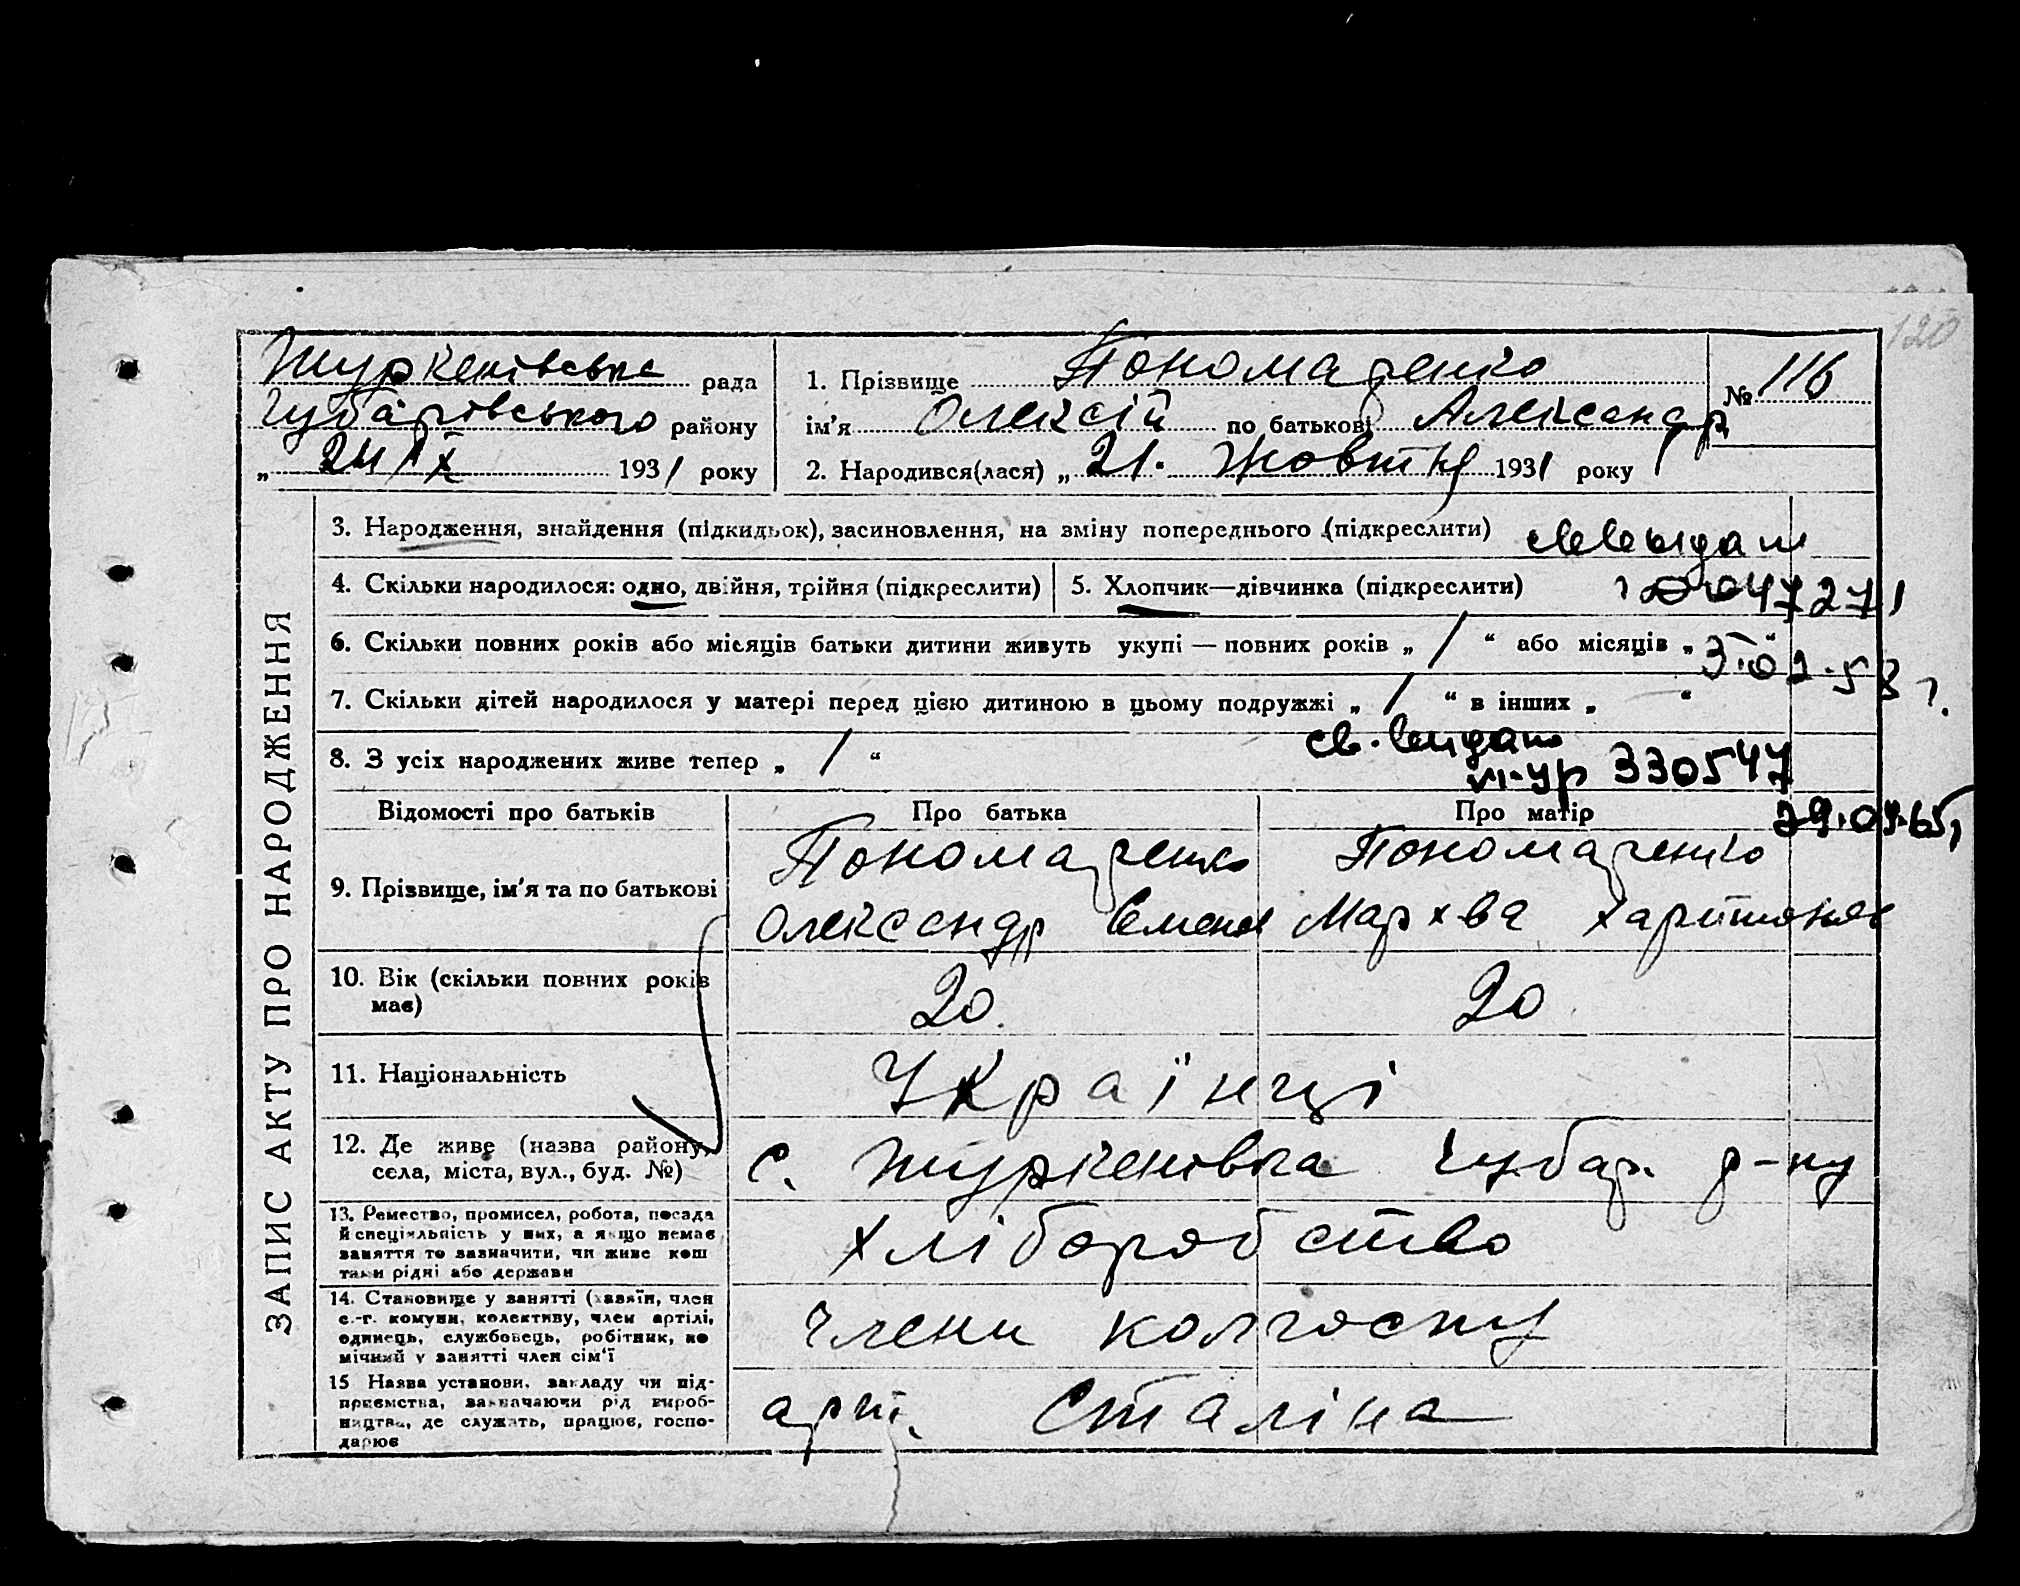 120
Туркенівська рада
Чубарівського району
„ 24/X 1931 року
1. Прізвище Пономаренко
ім'я Олексій по батькові Александр
2. Народився(лася) „ 21. Жовтня 1931 року
№ 116
ЗАПИС АКТУ ПРО НАРОДЖЕННЯ
3. Народження, знайдення (підкидьок), засиновлення, на зміну попереднього (підкреслити)
4. Скільки народилося: одно, двійня, трійня (підкреслити) 5. Хлопчик—дівчинка (підкреслити)
6. Скільки повних років або місяців батьки дитини живуть укупі — повних років „ 1 “ або місяців „ — “
7. Скільки дітей народилося у матері перед цією дитиною в цьому подружжі „ 1 “ в інших „ — “
8. З усіх народжених живе тепер „ 1 “
св. выдан
330547
29.09.65
Відомості про батьків Про батька Про матір
9. Прізвище, ім'я та по батькові
Пономаренко Пономаренко
Олександр Семенов Мархва Харитонов
10. Вік (скільки повних років має)
20. 20
11. Національність
Українці
12. Де живе (назва району, села, міста, вул., буд. №)
с. Туркенівка Чубар. р-ну
13. Ремество, промисел, робота, посада
й спеціяльність у них, а якщо немає
заняття то зазначити, чи живе кош
тами рідні або держави
Хліборобство
14. Становище у занятті (хазяїн, член
с.-г. комуни, колективу, член артілі,
одинець, службовець, робітник, по
мічний у занятті член сім'ї
Члени колгоспу
15 Назва установи, закладу чи під-
приємства, зазначаючи рід вироб-
ництва, де служать, працює, госпо-
дарює
арт. Сталіна